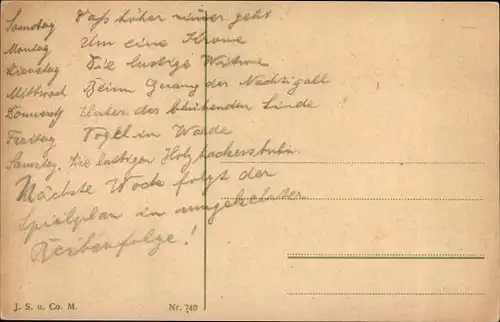 Samstag Daß höher nimmer geht!
Montag Um eine Krone
Dienstag Die lustige Witwe
Mittwoch Beim Gesang der Nachtigall
Donnerstg Unter der blühenden Linde
Freitag Vogel im Walde
Samstag. Die lustigen Holzhackersbub'n.
Nächste Woche folgt der
Spielplan in umgekehrter
Reihenfolge!
J. S. u. Co. M. Nr. 740